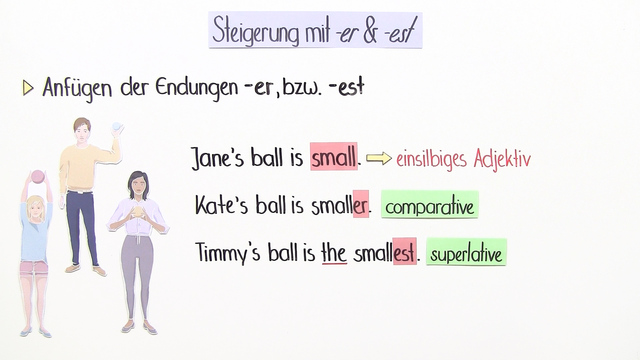 Steigerung mit -er & -est
Anfügen der Endungen -er, bzw. -est
Jane's ball is small. einsilbiges Adjektiv
Kate's ball is smaller. comparative
Timmy's ball is the smallest. superlative